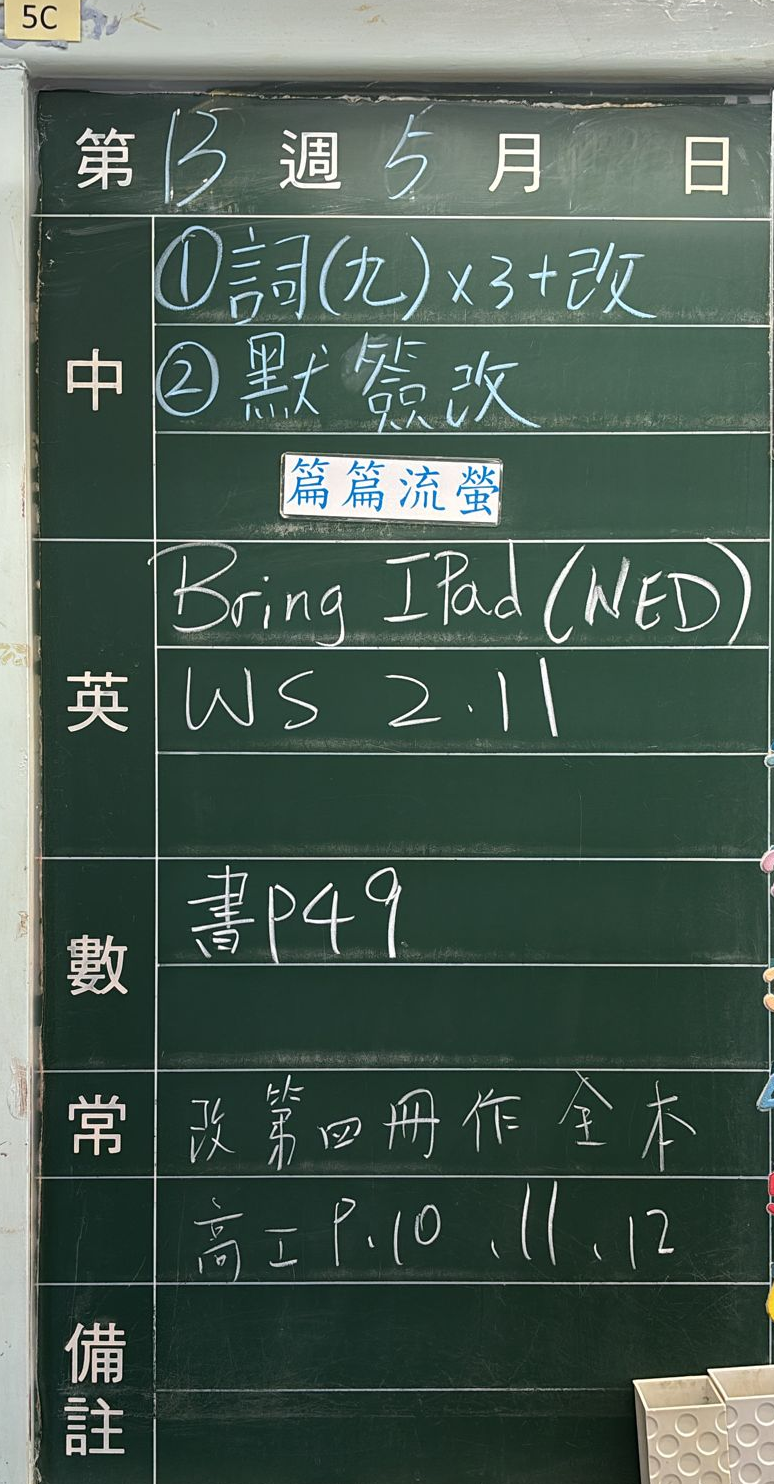 5C
第 13 週 5 月 日
中
①詞(九)x3+改
②默簽改
篇篇流螢
英
Bring IPad (NED)
WS 2.11
數
書P49
常
改第四冊作全本
高工P.10、11、12
備註